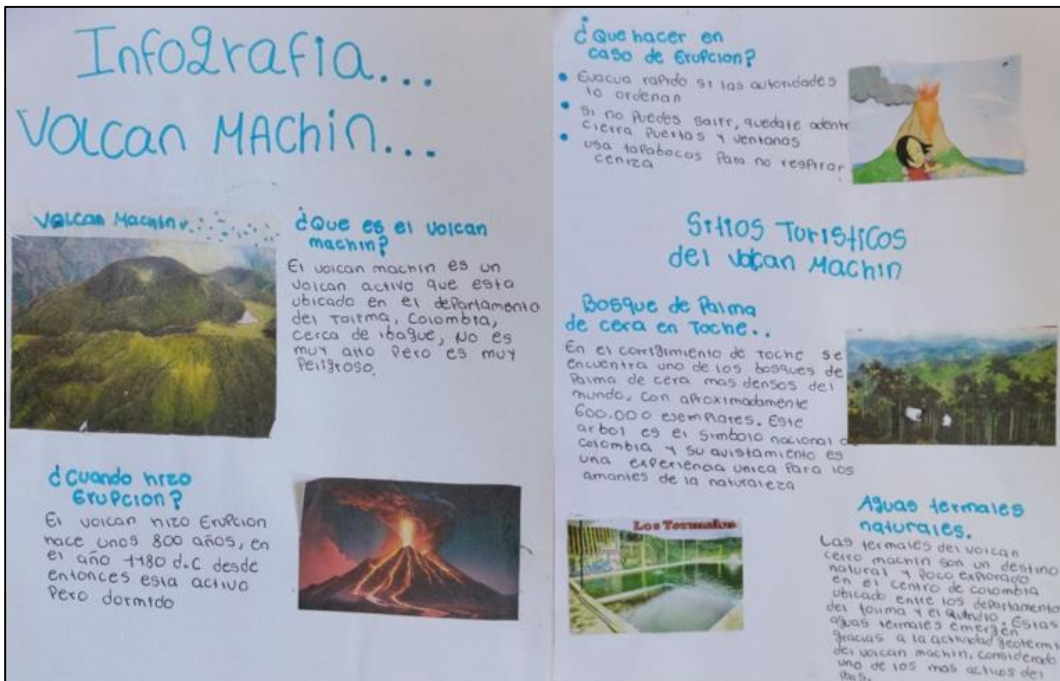 Infografia...
Volcan MAchin...
Volcan Machin
¿Que es el volcan
machin?
El volcan machin es un
volcan activo que esta
ubicado en el departamento
del Tolima, Colombia,
cerca de ibague, No es
muy alto Pero es muy
Peligroso.
¿Cuando hizo
Erupcion?
El volcan hizo Erupcion
hace unos 800 años, en
el año 1180 d.c desde
entonces esta activo
Pero dormido
¿Que hacer en
caso de Erupcion?
• Evacua rapido si las autoridades
lo ordenan
• Si no Puedes salir, quedate adentr
cierra Puertas y ventanas
• usa tapabocas Para no respirar
ceniza
Sitios Turisticos
del Volcan Machin
Bosque de Palma
de cera en Toche..
En el corregimiento de Toche se
encuentra uno de los bosques de
Palma de cera mas densos del
mundo, con aproximadamente
600.000 ejemplares. Este
arbol es el simbolo nacional d
colombia y su avistamiento es
una experiencia unica Para los
amantes de la naturaleza
Los Termales
Aguas termales
naturales.
Las termales del volcan
cerro machin son un destino
natural y poco explorado
en el centro de colombia
ubicado entre los departamento
del tolima y el quindio. Estas
aguas termales emergen
gracias a la actividad geotermi
del volcan machin, considerado
uno de los mas activos del
Pais.